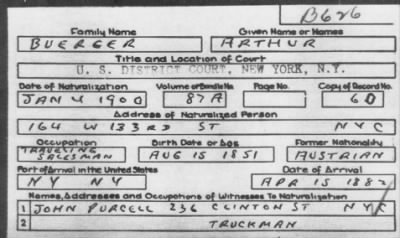 B626
Family Name Given Name or Names
BUERGER ARTHUR
Title and Location of Court
U. S. DISTRICT COURT, NEW YORK, N.Y.
Date of Naturalization Volume or Bundle No. Page No. Copy of Record No.
JAN 4 1900 87A 60
Address of Naturalized Person
164 W 133RD ST NYC
Occupation Birth Date or Age Former Nationality
TRAVELING
SALESMAN AUG 15 1851 AUSTRIAN
Port of Arrival in the United States Date of Arrival
NY NY APR 15 1882
Names, Addresses and Occupations of Witnesses To Naturalization
1 JOHN PURCELL 236 CLINTON ST NYC
2 TRUCKMAN